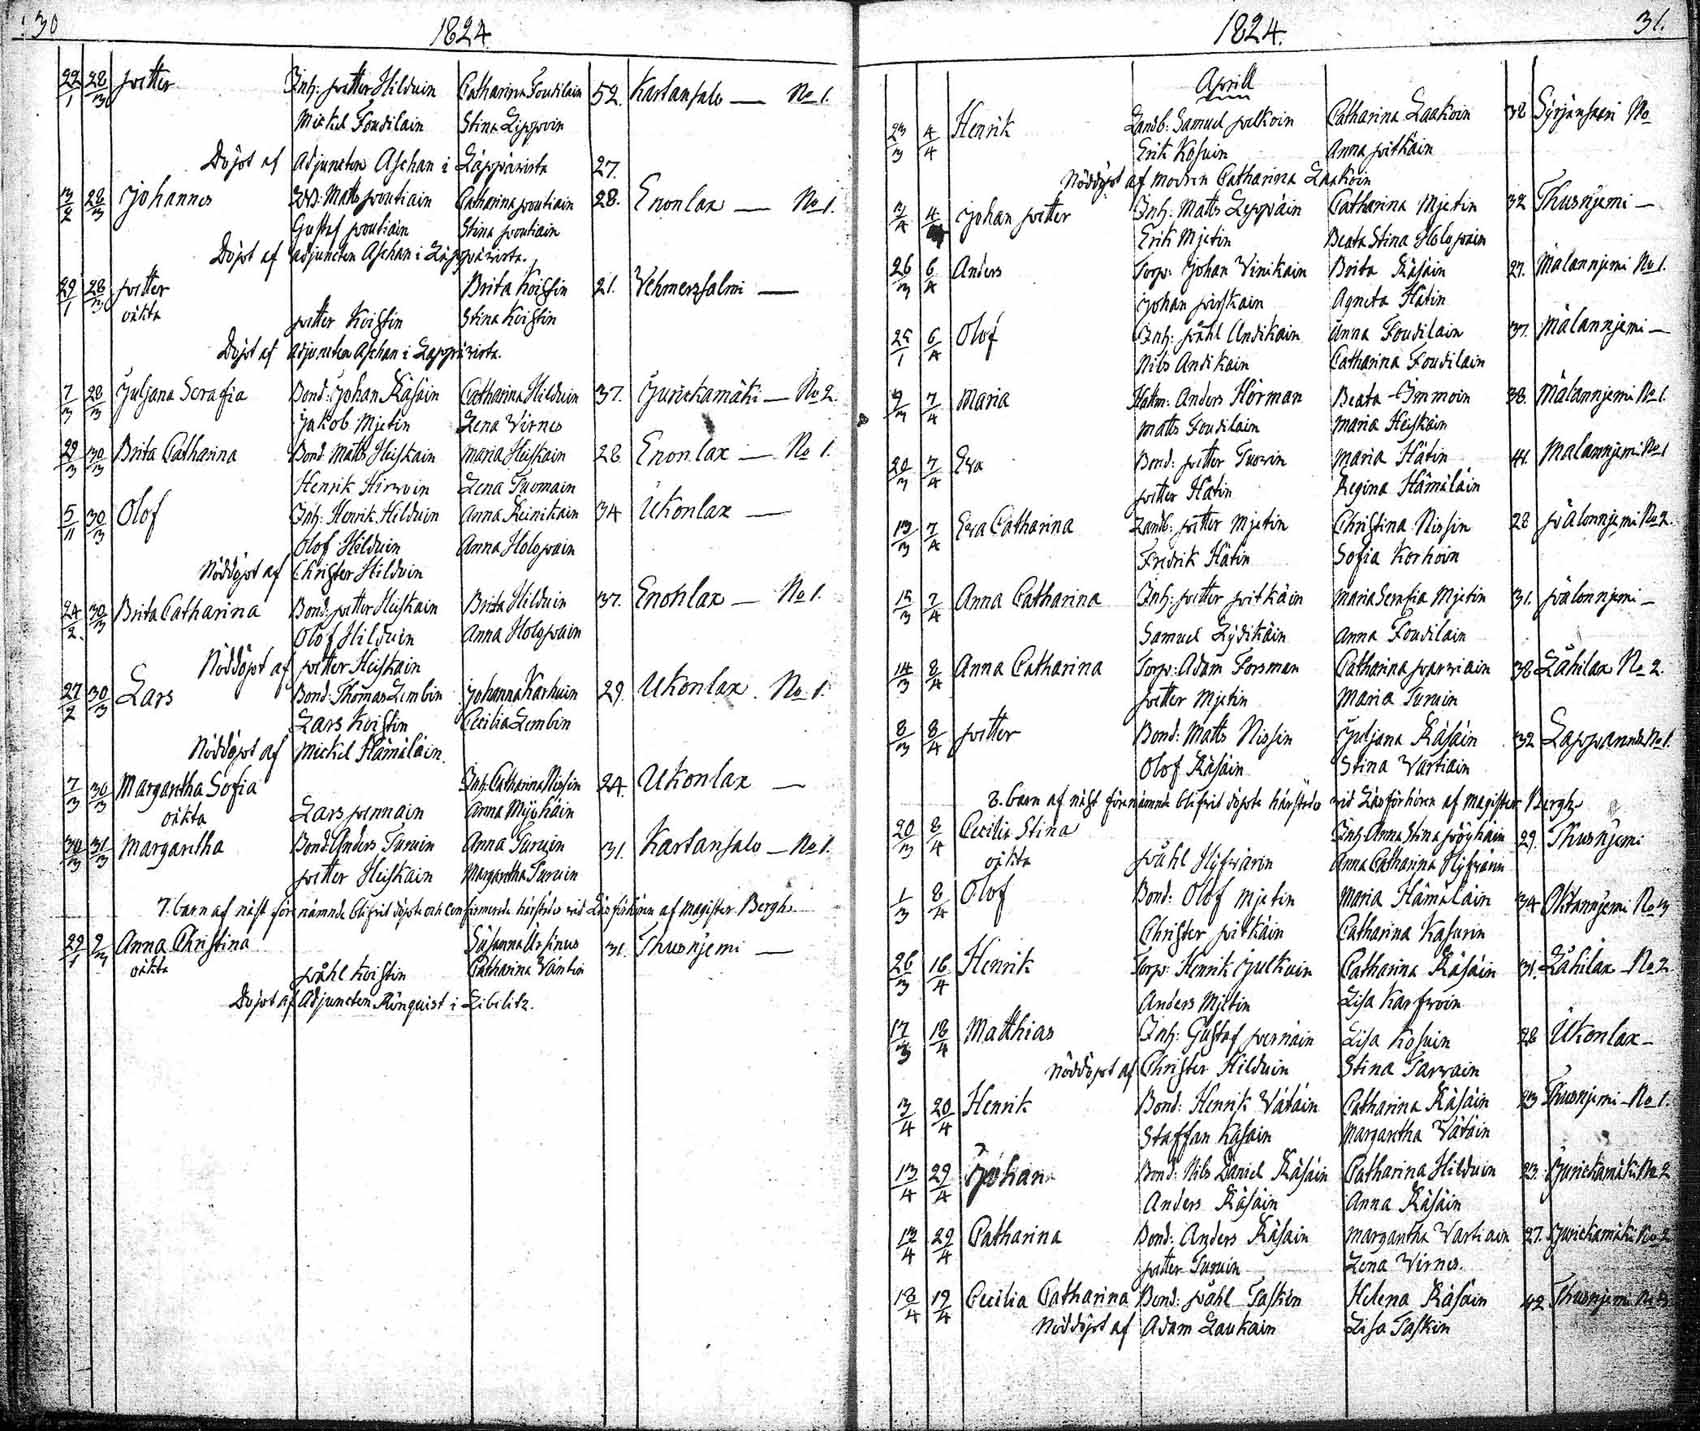 30 1824.
22/1 28/3 Petter Inh: Petter Hilduin Catharina Foudilain 52. Kartansalo — No 1.
Mickel Foudilain Stina Lippoin
Döpt af Adjuncten Aschan i Läppävirta 27.
3/2 28/3 Johannes Matts Poutiain Catharina Poutiain 28. Enonlax — No 1.
Gustaf Poutiain Stina Poutiain
Döpt af adjuncten Aschan i Läppävirta.
29/1 28/3 Petter Brita Koistin 21. Vehmersalmi —
oäkta Petter Koistin Stina Koistin
Döpt af Adjuncten Aschan i Läppävirta.
7/3 28/3 Juljana Serafia Bond: Johan Räsäin Catharina Hilduin 37. Jurickamäki — No 2.
Jakob Mjetin Lena Virnes
29/3 30/3 Brita Catharina Bond: Matts Heiskain Maria Heiskain 28 Enonlax — No 1.
Henrik Hirvoin Lena Tuomain
5/11 30/3 Olof Inh: Henrik Hilduin Anna Reinikain 34 Ukonlax —
Olof Hilduin Anna Holopain
Nöddöpt af Christer Hilduin
24/2. 30/3 Brita Catharina Bond: Petter Heiskain Brita Hilduin 37. Enonlax — No 1.
Olof Hilduin Anna Holopain
Nöddöpt af Petter Heiskain
27/2 30/3 Lars Bond: Thomas Lembin Johanna Karhuin 29. Ukonlax. No 1.
Lars Koistin Cecilia Lembin
Nöddöpt af Mickel Hämäläin.
7/3 30/3 Margaretha Sofia Inh: Catharina Nissin 24. Ukonlax —
oäkta Lars Pennain Anna Myöhäin
30/3 31/3 Margaretha Bond: Anders Turuin Anna Turuin 31. Kartansalo — No 1.
Petter Heiskain Margaretha Turuin
7. barn af näst förnämnde blifvit döpte och confirmerade härstädes vid Läsförhören af Magister Bergh.
29/1 Anna Christina Susanna Ursinus 31. Thusnjemi —
oäkta Påhl Koistin Catharina Väntin
Döpt af Adjuncten Rönquist i Libelitz.
1824. 31.
Aprill
23/3 4/4 Henrik Landb: Samuel Pulkoin Catharina Laakoin 38 Syrjänsaari No
Erik Kosuin Anna Pitkäin
Nöddöpt af modren Catharina Laakoin
3/4 4/4 Johan Petter Inh: Matts Leppäin Catharina Mjetin 32 Thusnjemi —
Erik Mjetin Beata Stina Holopain
26/3 6/4 Anders Torp: Johan Vinikain Brita Räsäin 27. Mälannjemi No 1.
Johan Pirskain Agneta Hätin
25/1 6/4 Olof Inh: Påhl Andikain Anna Foudilain 37. Mälannjemi —
Nils Andikain Catharina Foudilain
9/3 7/4 Maria Anders Hörman Beata Immoin 38. Mälannjemi No 1.
Matts Foudilain Maria Heiskain
20/3 7/4 Eva Bond: Petter Tuovin Maria Hätin 44. Mälannjemi No 1
Petter Hätin Regina Hämäläin
13/3 7/4 Eva Catharina Landb: Petter Mjetin Christina Nissin 28 Pälonnjemi No 2.
Fredrik Hätin Sofia Korhoin
15/3 7/4 Anna Catharina Inh: Petter Pitkäin Maria Serafia Mjetin 31. Pälonnjemi —
Samuel Lydikäin Anna Foudilain
14/3 8/4 Anna Catharina Torp: Adam Forsman Catharina Parviain 38 Lähilax No 2.
Petter Mjetin Maria Turuin
8/3 8/4 Petter Bond: Matts Nissin Juljana Räsäin 32 No 1.
Olof Räsäin Stina Vartiain
8. barn af näst förenämnde blifvit döpte härstädes vid Läsförhören af Magister Bergh
20/3 8/4 Cecilia Stina Inh: Anna Stina Pöyhäin 29. Thusnjemi
oäkta Påhl Hyfvärin Anna Catharina Hyfvärin
1/3 8/4 Olof Bond: Olof Mjetin Maria Hämäläin 34
Christer Pitkäin Catharina Kasurin
26/3 16/4 Henrik Torp: Henrik Julkuin Catharina Räsäin 31. Lähilax No 2.
Anders Mjetin Lisa Karfvoin
17/3 18/4 Matthias Inh: Gustaf Pernäin Lisa Kosuin 28 Ukonlax —
Nöddöpt af Christer Hilduin Stina Tarvain
3/4 20/4 Henrik Bond: Henrik Vätäin Catharina Räsäin 23 Thusnjemi — No 1.
Staffan Räsäin Margaretha Vätäin
13/4 29/4 Johan Bond: Nils Daniel Räsäin Catharina Hilduin 23. Jurickamäki No 2
Anders Räsäin Anna Räsäin
12/4 29/4 Catharina Bond: Anders Räsäin Margaretha Vartiain 27. Jurickamäki No 2
Petter Turuin Lena Virnes.
18/4 19/4 Cecilia Catharina Bond: Påhl Taskin Helena Räsäin 42 Thusnjemi
Nöddöpt af Adam Laukain Lisa Taskin